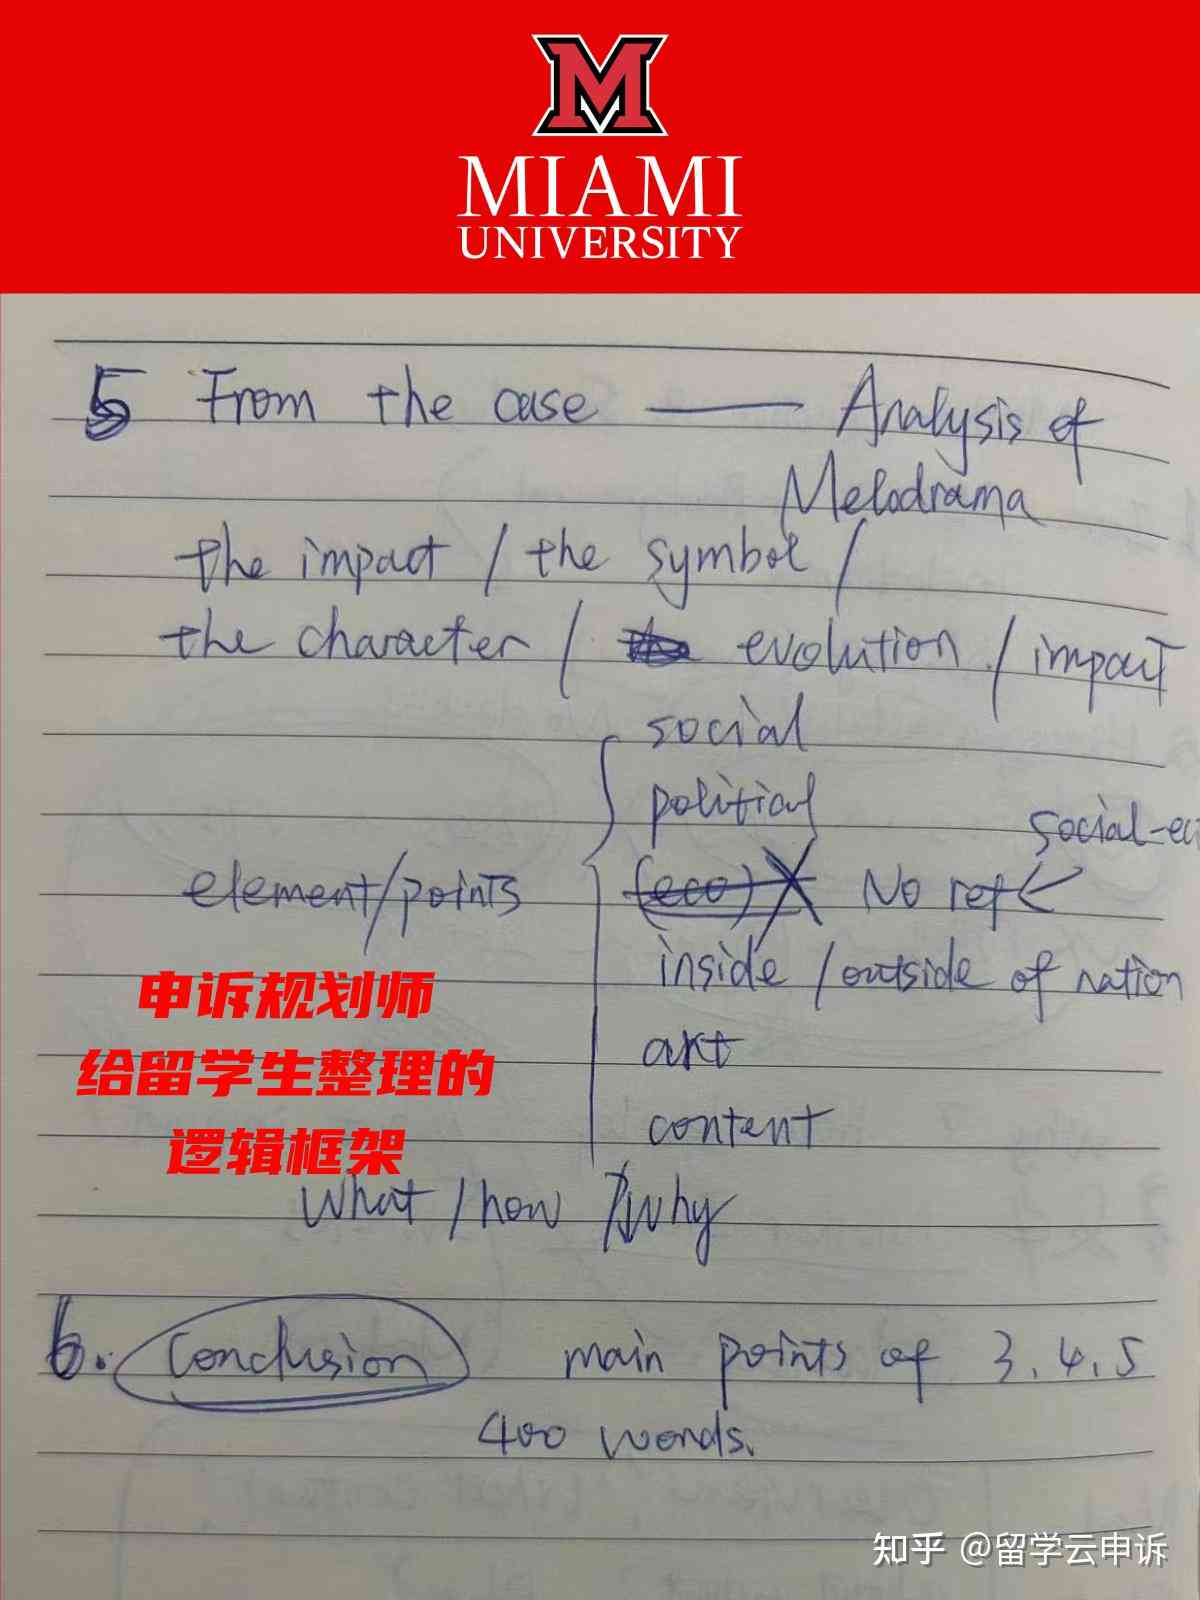 M
MIAMI
UNIVERSITY
5 From the case — Analysis of
Melodrama
the impact / the symbol /
the character / evolution / impact
social
political
social-ec
element/points (eco) No ref <
inside / outside of nation
art
content
申诉规划师
给留学生整理的
逻辑框架
What / how / why
6. Conclusion main points of 3.4.5
400 words.
知乎 @留学云申诉